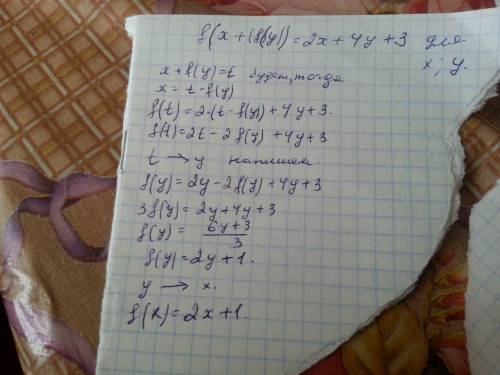 f(x+(f(y))=2x+4y+3 для
x; y.
x+f(y)=t будет, тогда
x= t-f(y)
f(t)=2·(t-f(y))+4y+3.
f(t)=2t-2f(y)+4y+3
t → y напишем.
f(y)=2y-2f(y)+4y+3
3f(y)=2y+4y+3
f(y)= 6y+3/3
f(y)=2y+1.
y → x.
f(x)=2x+1.